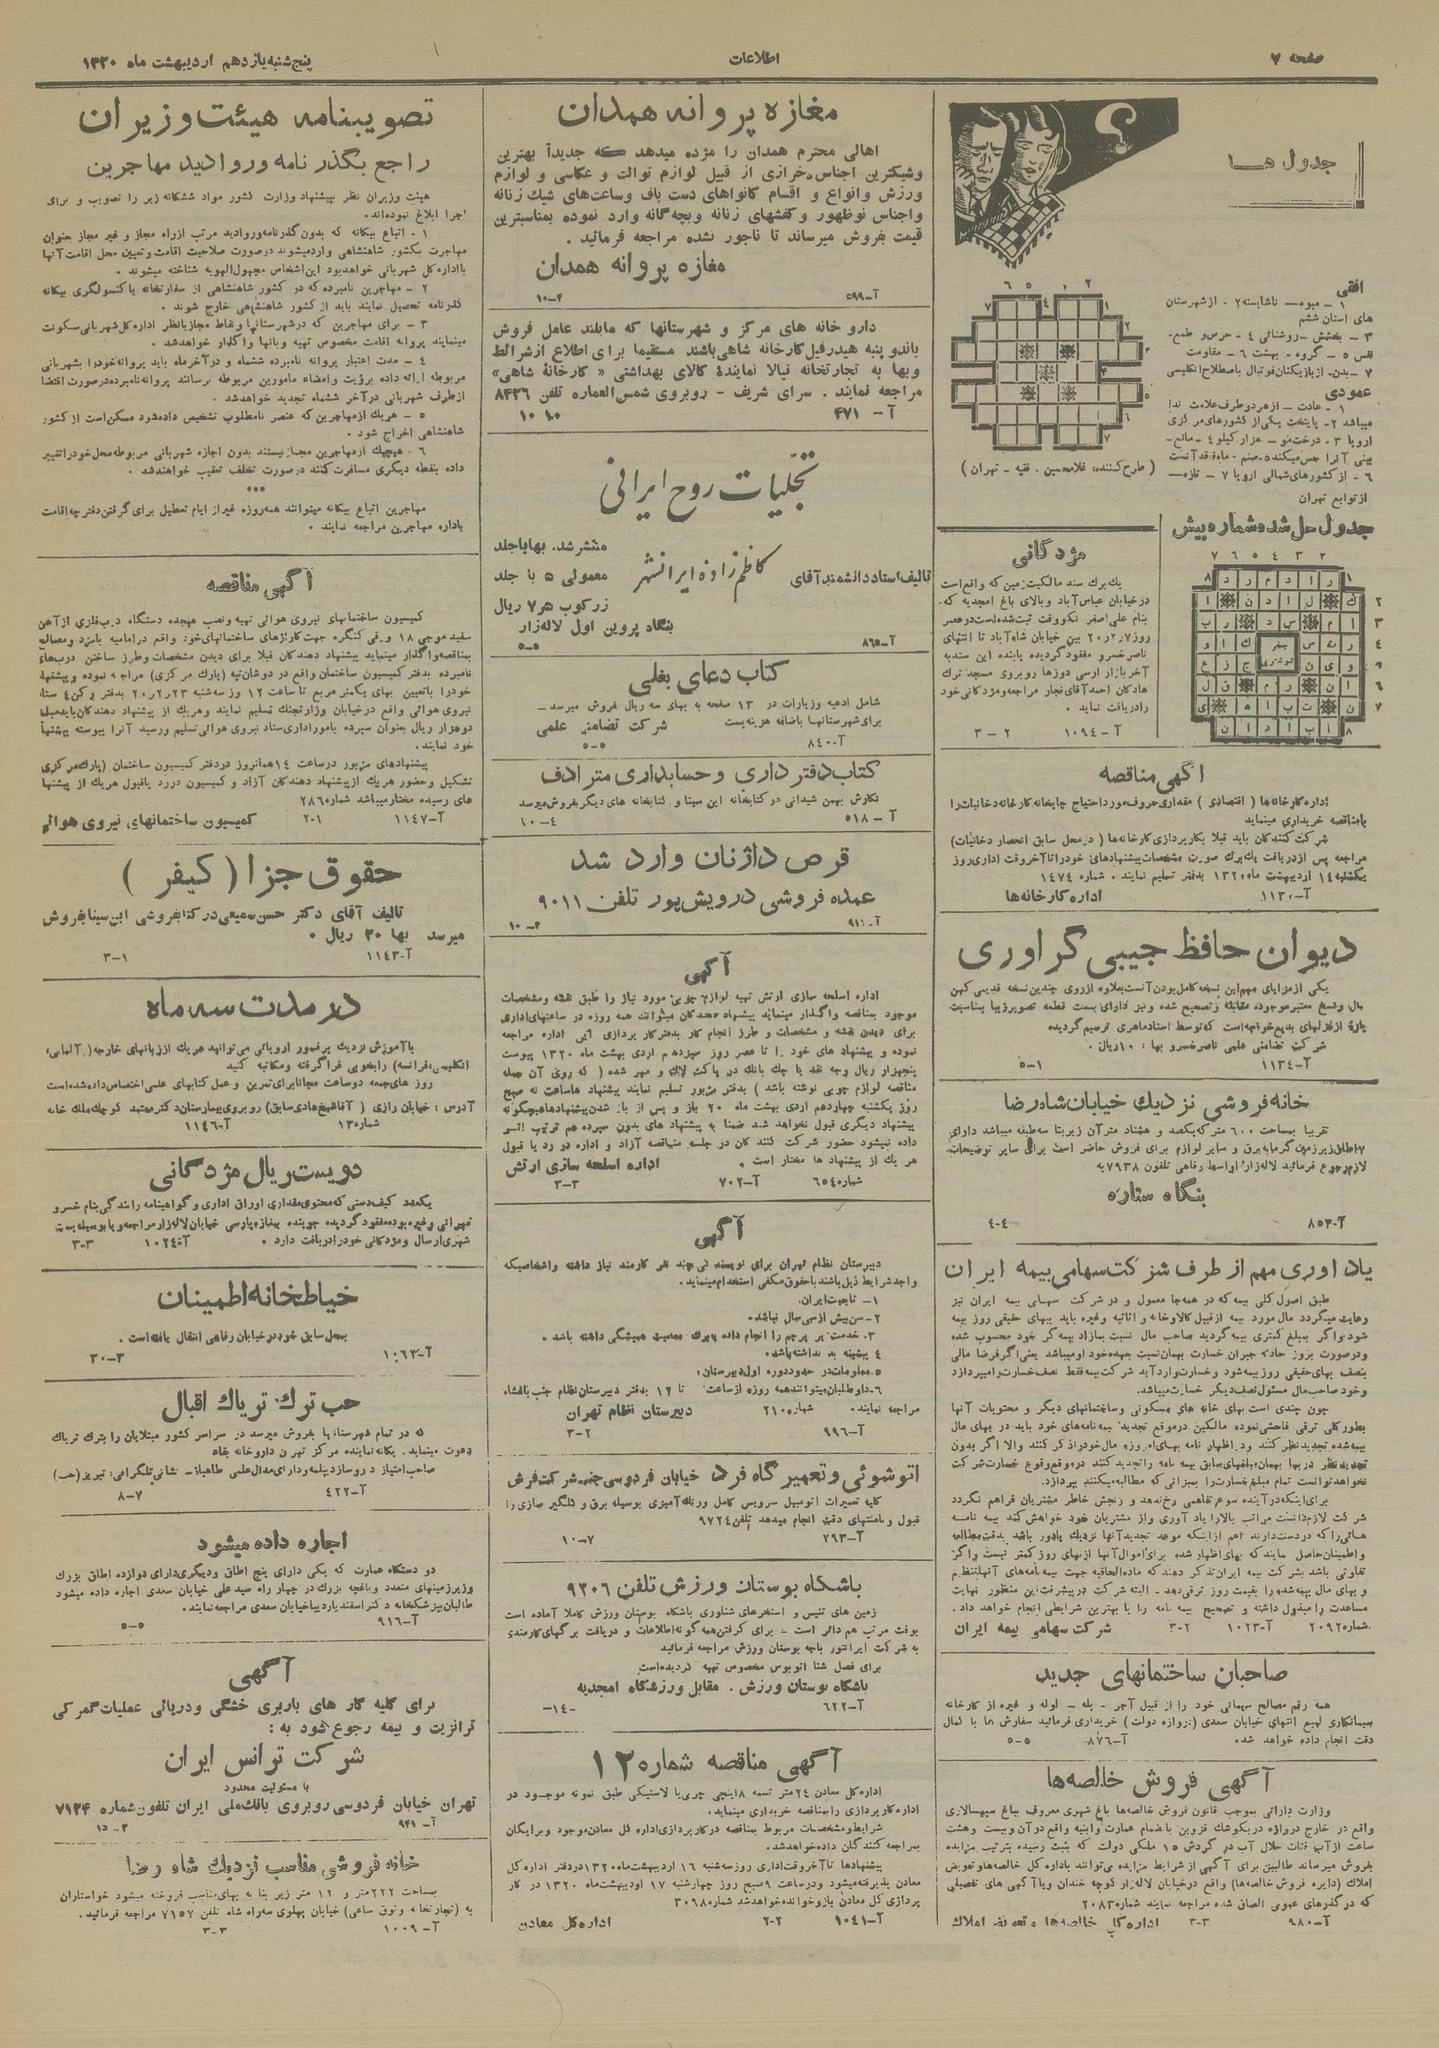 صفحه ۷
اطلاعات
پنج‌شنبه یازدهم اردیبهشت ماه ۱۳۲۰
جدول ها
افقی
۱ – میوه – ناشایسته ۲ . از شهرستان
های استان ششم
۳ – بخشش – روشنائی ۴ – حرص و طمع –
۵ – گروه – بهشت ۶ – مقاومت
۷ – بدن – از بازیکنان فوتبال باصطلاح انگلیسی
عمودی
۱ – عادت – از هر دو طرف علامت ندا
میباشد ۲ – پایتخت یکی از کشورهای مرکزی
اروپا ۳ . درخت مو – هزار کیلو ۴ – مانع –
بینی آنرا حس میکند ۵ صنم – ماه فاقد آنست
۶ – از کشورهای شمالی اروپا ۷ – تازه –
از توابع تهران
(طرح کننده: غلامحسین . فقیه – تهران)
جدول حل شده شماره پیش
مژدگانی
یک برگ سند مالکیت زمین که واقع است
در خیابان عباس آباد و بالای باغ امجدیه که
بنام علی اصغر نکووقت ثبت شده است در عصر
روز ۲٫۷ر۲۰ بین خیابان شاه آباد تا انتهای
ناصرخسرو مفقود گردیده یابنده این سند به
آخر بازار ارسی دوزها روبروی مسجد ترک
هادکان احمد آقای نجار مراجعه و مژدگانی خود
را دریافت نماید .
آ – ۱۰۹۴ ۲ – ۳
آگهی مناقصه
اداره کارخانه‌ها (اقتصادی) مقداری حروف مورد احتیاج چاپخانه کارخانه دخانیات را
بامناقصه خریداری مینماید
شرکت کنندگان باید قبلا بکارپردازی کارخانه‌ها (در محل سابق انحصار دخانیات)
مراجعه پس از دریافت یک برگ صورت مشخصات پیشنهادهای خود را تا آخر وقت اداری روز
یکشنبه ۱۴ اردیبهشت ماه ۱۳۲۰ بدفتر تسلیم نمایند . شماره ۱۴۷۴
آ–۱۱۳۰ اداره کارخانه‌ها
دیوان حافظ جیبی گراوری
یکی از مزایای مهم این نسخه کامل بودن آنست بعلاوه از روی چندین نسخه قدیمی کهن
سال و نسخ معتبر موجوده مقابله و تصحیح شده و نیز دارای بیست قطعه تصویر زیبا بمناسبت
پاره از غزلهای بدیع خواجه است که توسط استاد ماهری ترسیم گردیده
شرکت تضامنی علمی ناصرخسرو بها : ۱۰ ریال .
آ–۱۱۳۴ ۱–۵
خانه فروشی نزدیک خیابان شاه رضا
تقریبا بمساحت ۶۰۰ متر که یکصد و هشتاد متر آن زیر بنا سه طبقه میباشد دارای
۷ اطاق زیرزمین گرمابه برق و سایر لوازم برای فروش حاضر است برای سایر توضیحات
لازم رجوع فرمائید لاله زار اواسط رفاهی تلفون ۷۹۳۸ به
بنگاه ستاره
آ–۸۵۳ ۴–۴
یادآوری مهم از طرف شرکت سهامی بیمه ایران
طبق اصول کلی بیمه که در همه جا معمول و در شرکت سهامی بیمه ایران نیز
رعایت میگردد مال مورد بیمه از قبیل کالا و خانه و اثاثیه و غیره باید ببهای حقیقی روز بیمه
شود و اگر بمبلغ کمتری بیمه گردید صاحب مال نسبت بمازاد بیمه گر خود محسوب شده
و در صورت بروز حادثه جبران خسارت بهمان نسبت بعهده خود او میباشد یعنی اگر فرضا مالی
بنصف بهای حقیقی روز بیمه شود و خسارت وارد آید شرکت بیمه فقط نصف خسارت را میپردازد
و خود صاحب مال مسئول نصف دیگر خسارت میباشد.
چون چندی است بهای خانه های مسکونی و ساختمانهای دیگر و محتویات آنها
بطور کلی ترقی فاحشی نموده مالکین در موقع تجدید بیمه نامه‌های خود باید در بهای مال
بیمه شده تجدید نظر کنند و در اظهار نامه بهای امروزه مال خود را ذکر کنند والا اگر بدون
تجدید نظر در بها بهمان مبلغهای سابق بیمه نامه را تجدید کنند در موقع وقوع خسارت شرکت
نخواهد توانست تمام مبلغ خسارت را بمیزانی که مطالبه میکنند بپردازد.
برای اینکه در آینده سوء تفاهمی رخ ندهد و رنجش خاطر مشتریان فراهم نگردد
شرکت لازم دانست مراتب بالا را یادآوری و از مشتریان خود خواهش کند بیمه نامه
هائی را که در دست دارند اعم از اینکه موعد تجدید آنها نزدیک یا دور باشد بدقت مطالعه
و اطمینان حاصل نمایند که بهای اظهار شده برای اموال آنها از بهای روز کمتر نیست و اگر
تفاوتی باشد بشرکت بیمه ایران تذکر دهند که ماده الحاقیه جهت بیمه نامه‌های آنها تنظیم
و بهای مال بیمه شده را بقیمت روز ترقی دهد – البته شرکت در پیشرفت این منظور نهایت
مساعدت را مبذول داشته و تصحیح بیمه نامه را با بهترین شرایطی انجام خواهد داد .
شماره ۲۰۹۲ آ–۱۰۲۳ ۲–۳ شرکت سهامی بیمه ایران
صاحبان ساختمانهای جدید
همه رقم مصالح سیمانی خود را از قبیل آجر – پله – لوله و غیره از کارخانه
سیمانکاری انتهای خیابان سعدی (دروازه دولت) خریداری فرمائید سفارش ها با کمال
دقت انجام داده خواهد شد
آ–۸۷۶ ۵–۵
آگهی فروش خالصه‌ها
وزارت دارائی بموجب قانون فروش خالصه‌ها باغ شهری معروف بباغ سپهسالاری
واقع در خارج دروازه دربکوشک قزوین بانضمام عمارت و ابنیه واقع در آن و بیست و هشت
ساعت از آب قنات حلال آب در گردش ۱۵ ملکی دولت که بثبت رسیده بترتیب مزایده
بفروش میرساند طالبین برای آگهی از شرایط مزایده میتوانند باداره کل خالصه‌ها و تعویض
املاک (دایره فروش خالصه‌ها) واقع در خیابان لاله زار کوچه خندان و یا آگهی های تفصیلی
که در گذرهای عمومی الصاق شده مراجعه نمایند شماره ۲۰۸۳
آ–۹۸۰ ۳–۳ اداره کل خالصه‌ها و تعویض املاک
مغازه پروانه همدان
اهالی محترم همدان را مژده میدهد که جدیداً بهترین
و شیکترین اجناس خرازی از قبیل لوازم توالت و عکاسی و لوازم
ورزش و انواع و اقسام کانواهای دست باف و ساعت‌های شیک زنانه
و اجناس نوظهور و کفشهای زنانه و بچه گانه وارد نموده بمناسبترین
قیمت بفروش میرساند تا ناجور نشده مراجعه فرمائید .
مغازه پروانه همدان
آ–۵۹۹ ۴–۱۰
دارو خانه های مرکز و شهرستانها که مایلند عامل فروش
باندو پنبه هیدرفیل کارخانه شاهی باشند مستقیما برای اطلاع از شرائط
وبها به تجارتخانه فیالا نمایندهٔ کالای بهداشتی «کارخانهٔ شاهی»
مراجعه نمایند . سرای شریف – روبروی شمس العماره تلفن ۸۴۳۶
آ – ۴۷۱ ۱۰ ۱۰
تجلّیات روح ایرانی
تالیف استاد دانشمند آقای کاظم زاده ایرانشهر
منتشر شد. بها با جلد
معمولی ۵ با جلد
زرکوب هر ۷ ریال
بنگاه پروین اول لاله‌زار
آ–۸۶۵ ۵–۵
کتاب دعای بغلی
شامل ادعیه و زیارات در ۱۳ صفحه به بهای سه ریال فروش میرسد –
برای شهرستانها باضافه هزینه پست شرکت تضامنی علمی
آ–۸۴۰ ۵–۵
کتاب دفتر داری و حسابداری مترادف
نگارش بهمن شیدانی در کتابخانه ابن سینا و کتابخانه های دیگر بفروش میرسد
آ – ۵۱۸ ۴–۱۰
قرص داژنان وارد شد
عمده فروشی درویش پور تلفن ۹۰۱۱
آ–۹۱۱ ۲–۱۰
آگهی
اداره اسلحه سازی ارتش تهیه لوازم چوبی مورد نیاز را طبق نقشه و مشخصات
موجود بمناقصه واگذار مینماید پیشنهاد دهندگان میتوانند همه روزه در ساعتهای اداری
برای دیدن نقشه و مشخصات و طرز انجام کار بدفتر کار پردازی این اداره مراجعه
نموده و پیشنهاد های خود را تا عصر روز سیزدهم اردی بهشت ماه ۱۳۲۰ پیوست
پنجهزار ریال وجه نقد یا چک بانک در پاکت لاک و مهر شده (که روی آن جمله
مناقصه لوازم چوبی نوشته باشد) بدفتر مزبور تسلیم نمایند پیشنهاد ها ساعت نه صبح
روز یکشنبه چهاردهم اردی بهشت ماه ۲۰ باز و پس از باز شدن پیشنهادها هیچگونه
پیشنهاد دیگری قبول نخواهد شد ضمنا به پیشنهاد های بدون سپرده هم ترتیب اثر
داده نمیشود حضور شرکت کنندگان در جلسه مناقصه آزاد و اداره در رد یا قبول
هر یک از پیشنهاد ها مختار است . اداره اسلحه سازی ارتش
شماره ۶۵۴ آ–۷۰۲ ۳–۳
آگهی
دبیرستان نظام تهران برای نویسندگی چند نفر کارمند نیاز داشته و اشخاصیکه
واجد شرایط ذیل باشند با حقوق مکفی استخدام مینماید.
۱ – تابعیت ایران.
۲ – سن بیش از سی سال نباشد.
۳ . خدمت زیر پرچم را انجام داده یا برگ معافیت همیشگی داشته باشد .
۴ پیشینه بد نداشته باشد.
۵ . معلومات در حدود دوره اول دبیرستان.
۶ – داوطلبان میتوانند همه روزه از ساعت تا ۱۲ بدفتر دبیرستان نظام جنب باغشاه
مراجعه نمایند. شماره ۲۱۰ دبیرستان نظام تهران
آ–۹۹۶ ۲–۳
اتوشوئی و تعمیر گاه فرد خیابان فردوسی جنب شرکت فرش
کلیه تعمیرات اتومبیل سرویس کامل و رنک آمیزی بوسیله برق و گلگیر سازی را
قبول و بامنتهای دقت انجام میدهد تلفن ۹۷۲۴
آ–۲۹۳ ۷–۱۰
باشگاه بوستان ورزش تلفن ۹۳۰۶
زمین های تنیس و استخرهای شناوری باشگاه بوستان ورزش کاملا آماده است
بوفت مرتب هم دائر است – برای گرفتن همه گونه اطلاعات و دریافت برگهای کارمندی
به شرکت ایرانتور باجه بوستان ورزش مراجعه فرمائید
برای فصل شنا اتوبوس مخصوص تهیه گردیده است
باشگاه بوستان ورزش . مقابل ورزشگاه امجدیه
آ–۶۲۲ –۱۴–
آگهی مناقصه شماره ۱۲
اداره کل معادن ۲۴ متر تسمه ۱۸ اینچی چرمی یا لاستیکی طبق نمونه موجود در
اداره کارپردازی را بمناقصه خریداری مینماید.
شرایط و مشخصات مربوط بمناقصه در کارپردازی اداره کل معادن موجود و برایگان
بمراجعه کنندگان داده خواهد شد.
پیشنهادها تا آخر وقت اداری روز سه شنبه ۱۶ اردیبهشت ماه ۱۳۲۰ در دفتر اداره کل
معادن پذیرفته میشود و در ساعت ۹ صبح روز چهارشنبه ۱۷ اردیبهشت ماه ۱۳۲۰ در کار
پردازی کل معادن باز و خوانده خواهد شد شماره ۳۰۹۸
آ–۱۰۴۱ ۲–۲ اداره کل معادن
تصویبنامه هیئت وزیران
راجع بگذر نامه و روادید مهاجرین
هیئت وزیران نظر بپیشنهاد وزارت کشور مواد ششگانه زیر را تصویب و برای
اجرا ابلاغ نموده‌اند.
۱ – اتباع بیگانه که بدون گذرنامه و روادید مرتب از راه مجاز و غیر مجاز بعنوان
مهاجرت بکشور شاهنشاهی وارد میشوند در صورت صلاحیت اقامت و تعیین محل اقامت آنها
با اداره کل شهربانی خواهد بود این اشخاص مجهول الهویه شناخته میشوند .
۲ – مهاجرین نامبرده که در کشور شاهنشاهی از سفارتخانه یا کنسولگری بیگانه
گذرنامه تحصیل نمایند باید از کشور شاهنشاهی خارج شوند .
۳ – برای مهاجرین که در شهرستانها و نقاط مجاز با نظر اداره کل شهربانی سکونت
مینمایند پروانه اقامت مخصوص تهیه و بآنها واگذار خواهد شد.
۴ – مدت اعتبار پروانه نامبرده ششماه و در آخر ماه باید پروانه خود را بشهربانی
مربوطه ارائه داده برؤیت و امضاء مامورین مربوطه برسانند پروانه نامبرده در صورت اقتضا
از طرف شهربانی در آخر ششماه تجدید خواهد شد.
۵ – هریک از مهاجرین که عنصر نامطلوب تشخیص داده شود ممکن است از کشور
شاهنشاهی اخراج شود .
۶ . هیچیک از مهاجرین مجاز نیستند بدون اجازه شهربانی مربوطه محل خود را تغییر
داده بنقطه دیگری مسافرت کنند در صورت تخلف تعقیب خواهند شد .
***
مهاجرین اتباع بیگانه میتوانند همه روزه غیر از ایام تعطیل برای گرفتن دفترچه اقامت
باداره مهاجرین مراجعه نمایند .
آگهی مناقصه
کمیسیون ساختمانهای نیروی هوائی تهیه و نصب هیجده دستگاه درب فلزی از آهن
سفید موجی ۱۸ ورقی کنگره جهت گاراژهای ساختمانهای خود واقع در امامیه بامزد و مصالح
بمناقصه واگذار مینماید پیشنهاد دهندگان قبلا برای دیدن مشخصات و طرز ساختن درب‌های
نامبرده بدفتر کمیسیون ساختمان واقع در دوشان تپه (پارک مرکزی) مراجعه نموده و پیشنهاد
خود را باتعیین بهای یکمتر مربع تا ساعت ۱۲ روز سه شنبه ۲۳ر۲ر۲۰ بدفتر رکن ۴ ستاد
نیروی هوائی واقع در خیابان وزارت جنگ تسلیم نمایند و هریک از پیشنهاد دهندگان باید مبلغ
دوهزار ریال بعنوان سپرده بامور اداری ستاد نیروی هوائی تسلیم و رسید آنرا پیوسته پیشنهاد
خود نمایند.
پیشنهادهای مزبور در ساعت ۱۴ همانروز در دفتر کمیسیون ساختمان (پارک مرکزی)
تشکیل و حضور هریک از پیشنهاد دهندگان آزاد و کمیسیون در رد یا قبول هریک از پیشنهاد
های رسیده مختار میباشد شماره ۲۸۶
آ–۱۱۴۷ ۱–۲ کمیسیون ساختمانهای نیروی هوائی
حقوق جزا (کیفر)
تالیف آقای دکتر حسن سمیعی در کتابفروشی ابن سینا بفروش
میرسد بها ۳۰ ریال .
آ–۱۱۴۳ ۱–۳
در مدت سه ماه
با آموزش نزدیک پرفسور اروپائی می‌توانید هریک از زبانهای خارجه (آلمانی،
انگلیسی، فرانسه) را بخوبی فرا گرفته و مکاتبه کنید
روز های جمعه دو ساعت مجانا برای تمرین و عمل کتابهای علمی اختصاص داده شده است
آدرس : خیابان رازی (آقا شیخ هادی سابق) روبروی بیمارستان دکتر معتمد کوچه ملک خانه
شماره ۱۳ آ–۱۱۴۶
دویست ریال مژدگانی
یکعدد کیف دستی که محتوی مقداری اوراق اداری و گواهینامه رانندگی بنام خسرو
تهرانی و غیره بوده مفقود گردیده جوینده بمغازه پارسی خیابان لاله زار مراجعه و یا بوسیله پست
شهری ارسال و مژدگانی خود را دریافت دارد . آ–۱۰۲۴ ۳–۳
خیاطخانه اطمینان
بمحل سابق خود در خیابان رفاهی انتقال یافته است .
آ–۱۰۶۳ ۳–۳۰
حب ترک تریاک اقبال
که در تمام شهرستانها بفروش میرسد در سراسر کشور مبتلایان را بترک تریاک
دعوت مینماید. یگانه نماینده مرکز تهران داروخانه بقاء
صاحب امتیاز دروساز دیپلمه و دارای مدال علمی طاهباز – نشانی تلگرافی: تبریز (حب)
آ–۴۲۲ ۷–۸
اجاره داده میشود
دو دستگاه عمارت که یکی دارای پنج اطاق و دیگری دارای دوازده اطاق بزرگ
و زیرزمینهای متعدد و باغچه بزرگ در چهار راه سید علی خیابان سعدی اجاره داده میشود
طالبان بپزشکخانه دکتر اسفندیاردیبا خیابان سعدی مراجعه نمایند.
آ–۹۱۶ ۵–۵
آگهی
برای کلیه کار های باربری خشگی و دریائی عملیات گمرکی
ترانزیت و بیمه رجوع شود به :
شرکت ترانس ایران
با مسئولیت محدود
تهران خیابان فردوسی روبروی بانک ملی ایران تلفون شماره ۷۱۲۴
آ–۹۴۱ ۳–۱۵
خانه فروشی مناسب نزدیک شاه رضا
بمساحت ۲۲۲ متر و ۱۲ متر زیر بنا به بهای مناسب فروخته میشود خواستاران
به (تجارتخانه وثوق ساعی) خیابان پهلوی سه راه شاه تلفن ۷۱۵۷ مراجعه فرمائید.
آ–۱۰۰۹ ۳–۳